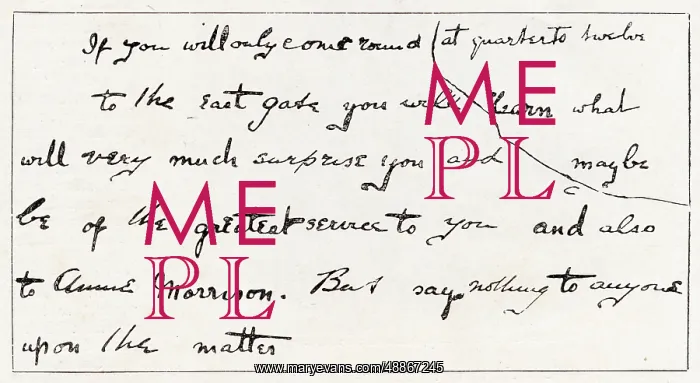 If you will only come round at quarter to twelve
to the east gate you will learn what
will very much surprise you and maybe
be of the greatest service to you and also
to Annie Morrison. But say nothing to anyone
upon the matter
ME
PL
ME
PL
www.maryevans.com/48867245